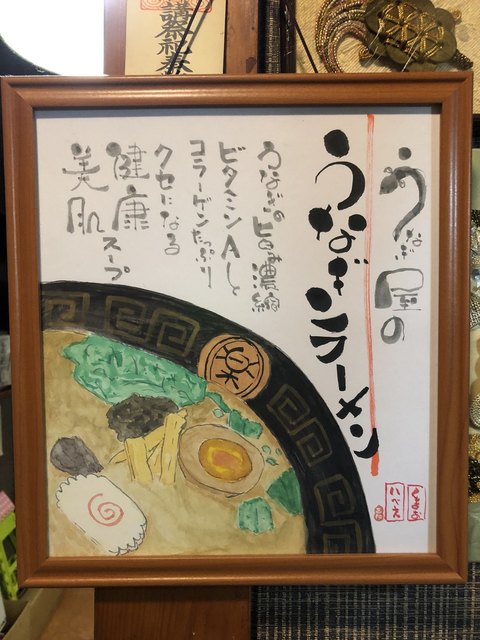 うなぎ屋の
うなぎラーメン
うなぎの旨み濃縮
ビタミンAと
コラーゲンたっぷり
クセになる
健康スープ
美肌